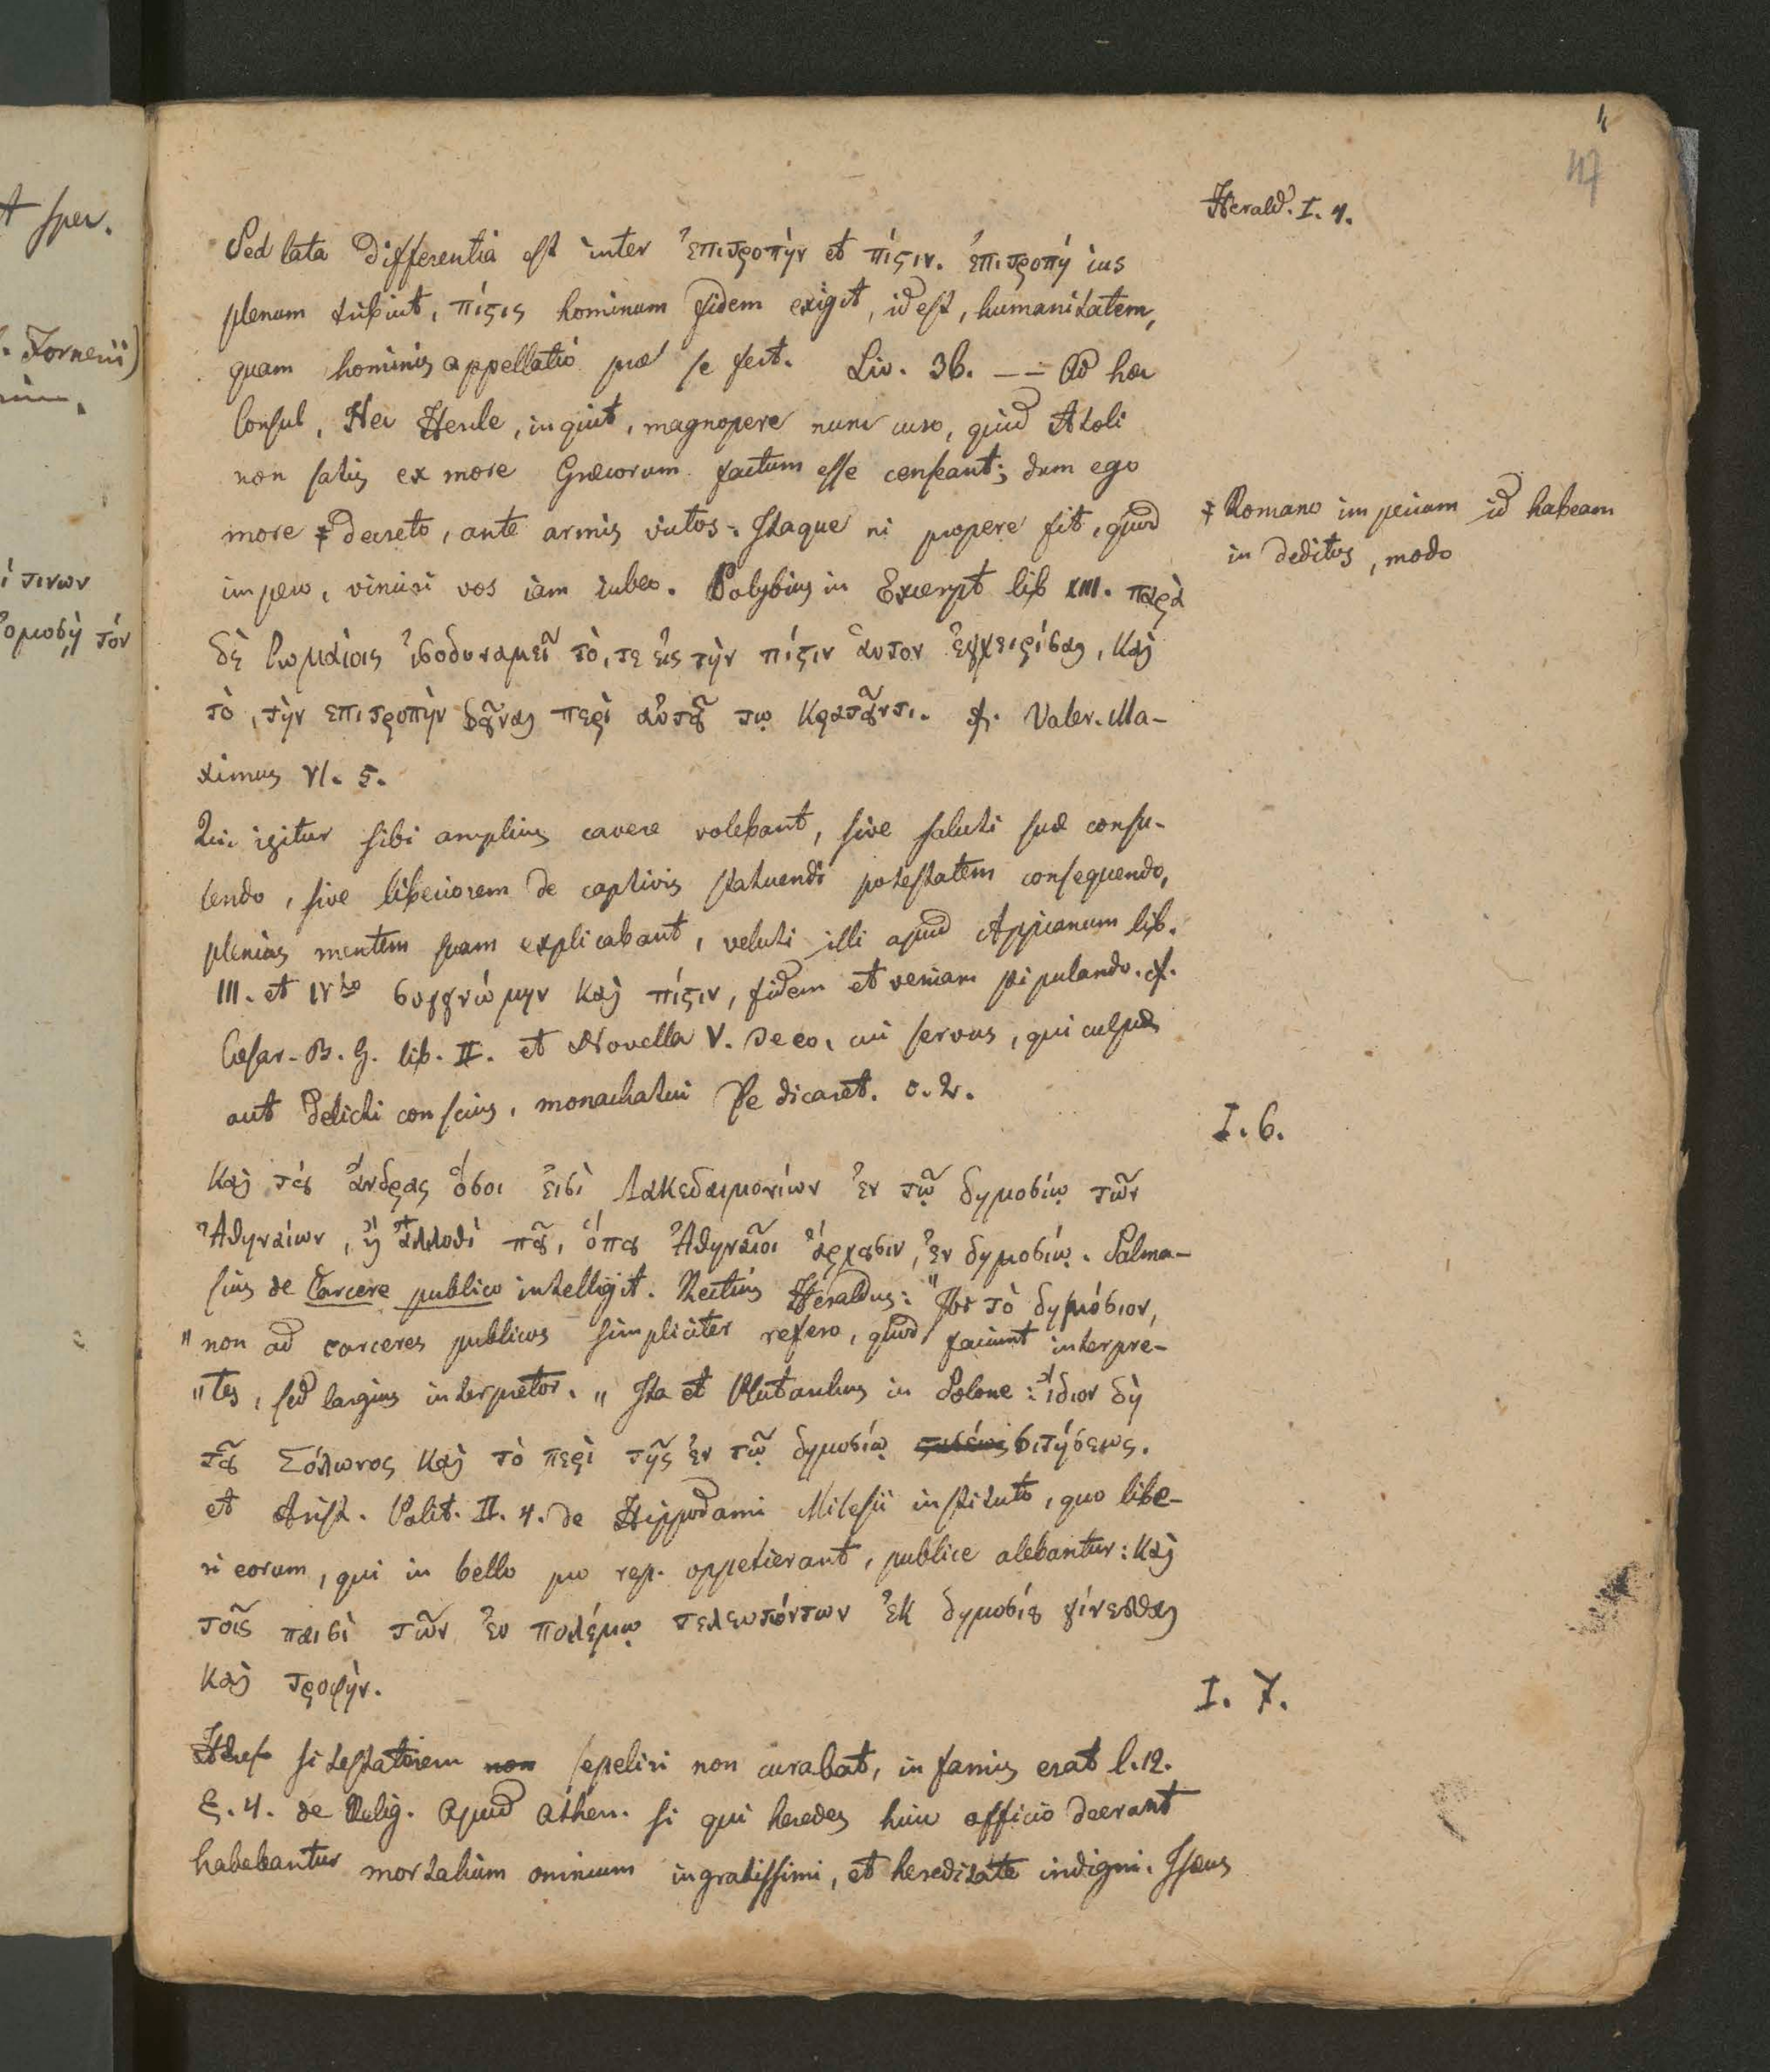 4
47
Herald. I. 4.
Sed lata differentia est inter ἐπιτροπὴν et πίςιν. ἐπιτροπή ius
plenum tribuit, πίςις hominum fidem exigit, id est, humanitatem,
quam hominis appellatio præ se fert. Liv. 36. -- = Ad hæc
Consul, Nec Hercle, inquit, magnopere nunc curo, quid Ætoli
non satis ex more Græcorum factum esse censeant; dum ego
more ‡ decreto, ante armis victos. Itaque ni propere fit, quod
‡ Romano imperium id habeam
in deditos, modo
impero, vinciri vos iam iubeo. Polybius in Excerpt lib XIII. παρὰ
δὲ Ρωμαίοις ἰσοδυναμεῖ τὸ, τε εἰς τὴν πίςιν ἁυτον ἐγχειρίσαι, καὶ
τὸ, τὴν επιτροπὴν δȣ͂ναι περὶ αὑτȣ͂ τῳ κρατȣ͂ντι. cf. Valer. Ma-
ximus VI. 5.
Qui igitur sibi amplius cavere volebant, sive saluti suæ consu-
lendo, sive liberiorem de captivis statuendi potestatem consequendo,
plenius mentem suam explicabant, veluti illi apud Appianum lib.
III. et IVto συγγνώμην καὶ πίςιν, fidem et veniam stipulando. cf.
Cæsar. B. G. lib. II. et Novella V. de eo, cui servus, qui culpæ
aut delicti conscius, monachatui se dicaret. c. 2.
I. 6.
Καὶ τȣ̀ς ἄνδρας ὅσοι ἐισὶ Λακεδαιμονίων ἐν τῷ δημοσίῳ τῶν
Ἀθηναίων, ἢ ἄλλοθὶ πȣ͂, ὅπȣ Ἀθηναῖοι ἄρχȣσιν, ἐν δημοσίῳ. Salma-
sius de Carcere publico intelligit. Rectius Heraldus: "Ibi τὸ δημόσιον,
" non ad carceres publicos simpliciter refero, quod faciunt interpre-
" tes, sed largius interpretor. „ Ita et Plutarchus in Solone: ἴδιον δὴ
τȣ͂ Σόλωνος καὶ τὸ περὶ τῆς ἐν τῷ δημοσίῳ σιτήσεως.
et Arist. Polit. II. 4. de Hippodami Milesii instituto, quo libe-
ri eorum, qui in bello pro rep. oppetierant, publice alebantur: καὶ
τοῖς παισὶ τῶν ἐν πολέμῳ τελευτόντων ἐκ δημοσίȣ γίνεσθαι
καὶ τροφὴν.
I. 7.
si testatorem non sepeliri non curabat, infamis erat l. 12.
§. 4. de Relig. Apud Athen. si qui heredes huic officio deerant
habebantur mortalium omnium ingratissimi, et hereditate indigni. Isæus